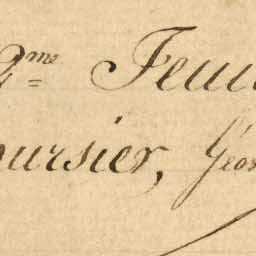 2me Feui
oursier, Géo